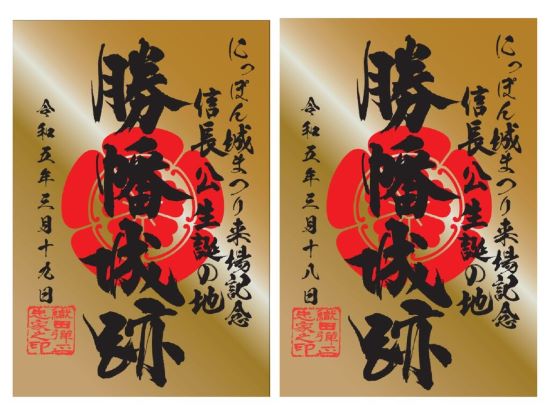 にっぽん城まつり来場記念
信長公生誕の地
勝幡城跡
令和五年三月十九日
織田弾正
忠家之印
にっぽん城まつり来場記念
信長公生誕の地
勝幡城跡
令和五年三月十八日
織田弾正
忠家之印